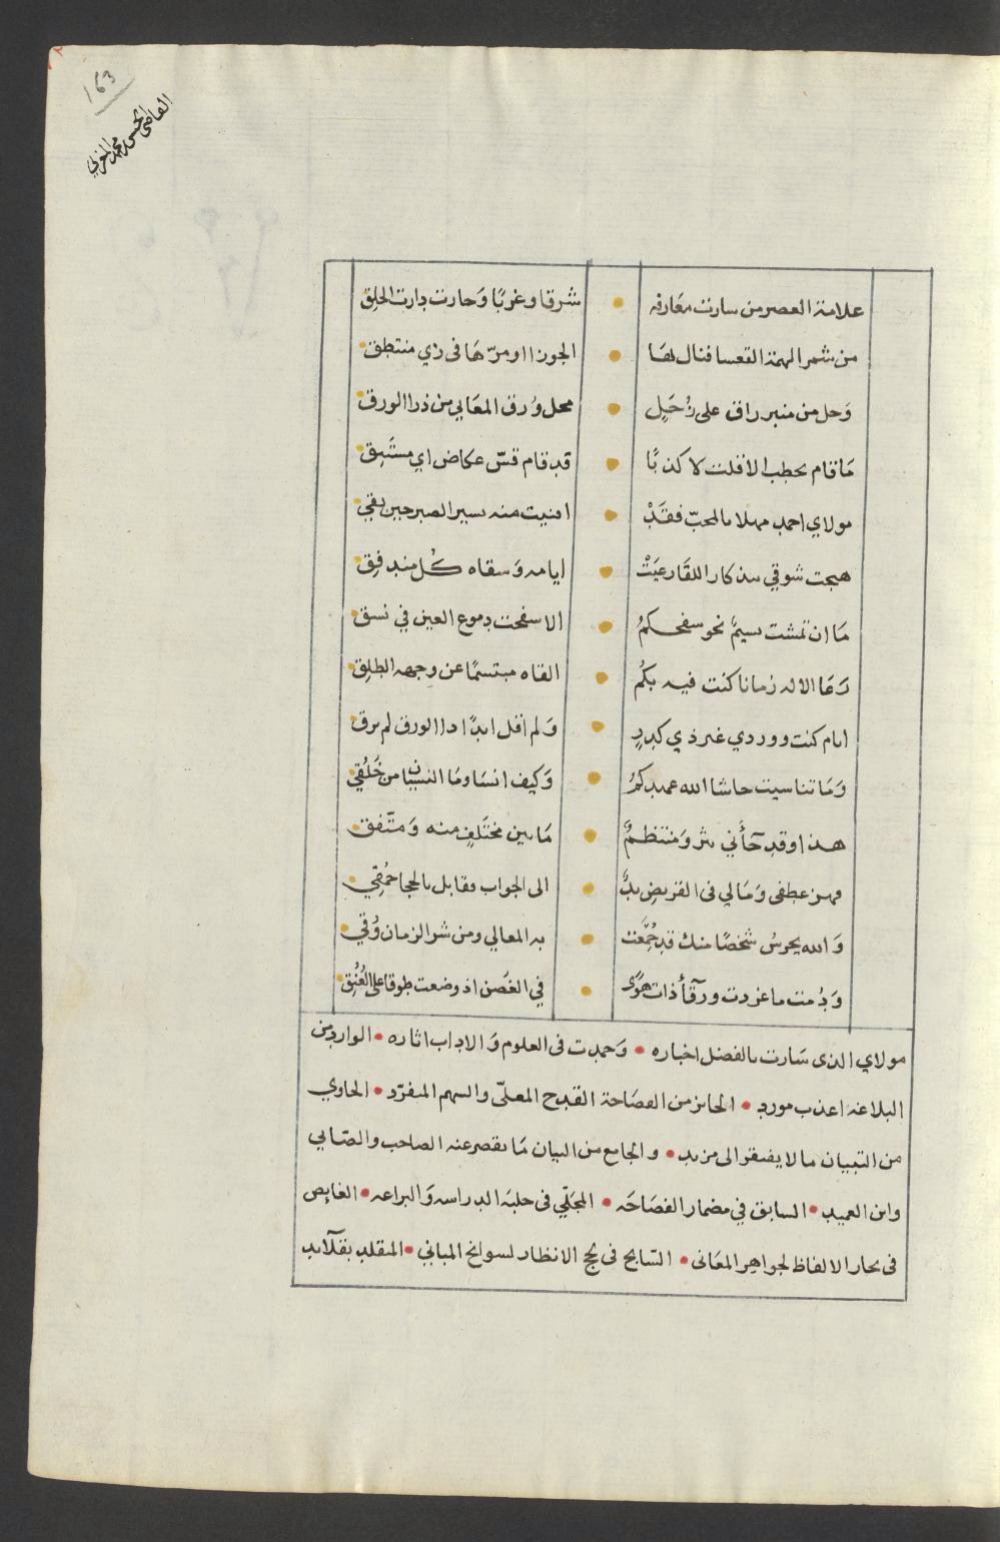 163
القاضي الحسن بن محمد المغربي
علامة العصر من سارت معارفه • شرقا وغربًا وَحارت دارت الحلق
من شمر الهمة القعسا فنال لها • الجوزا اومرّ هَا في زي منتطق
وَحل من منبر راق على زُحَلٍ • محل وُرق المعَالي من ذرا الورق
مَا قام يخطب الا قلت لا كذبًا • قد قام قسّ عكاض اي مستَبق
مولاي احمد مهلا بالمحبّ فقَدْ • افنيت منه يسير الصبر حين بقي
هيجت شوقي بتذكار اللقَا رعيَتْ • ايامه وَسقاه كُل مندفِق
مَا ان تمشت نسيمٌ نحو سفحكمُ • الا سفحت دموع العين في نسق
رَعَا الاله زمانا كنت فيه بكُم • القاه مبتسمًا عن وجهه الطلِق
ايام كنت ووردي غير ذي كدرٍ • وَلم اقل ابدًا اذا الورق لم يرق
وَمَا تناسيت حاشا الله عهدكمُ • وَكيف انسَا ومَا النسيان من خَلُقي
هذا وقد جَآني نثر وَمنتظمٌ • مَا بين مختَلفٍ منه وَمتّفق
فهز عطفي وَمَا لي في القريض يدٌ • الى الجواب فقابل بالحجا حمُقِي
وَالله يحرسُ شخصًا منك قد جُمّعَت • به المعالي ومن شر الزمان وُقي
وَدُمت ما غردت ورقآ ذات هوًى • في الغصن اذ وضعت طوقا على العُنُق
مولاي الذي سَارت بالفضل اخباره • وَحمدت في العلوم وَالاداب اثاره • الوارد من
البلاغة اعذب مورد • الحائز من الفصَاحة القدح المعلّى والسهم المفرّد • الحاوي
من التبيان ما لا يفتقر الى مزيد • والجامع من البيان مَا يقصر عنه الصاحب والصّابي
وابن العميد • السابق في مضمار الفصَاحَه • المجلّي في حلبَة الدراسه وَالبراعه • الغايص
في بحار الالفاظ لجواهر المعَاني • السّابح في لجج الانظار لسوانح المباني • المقلد بقلآيد